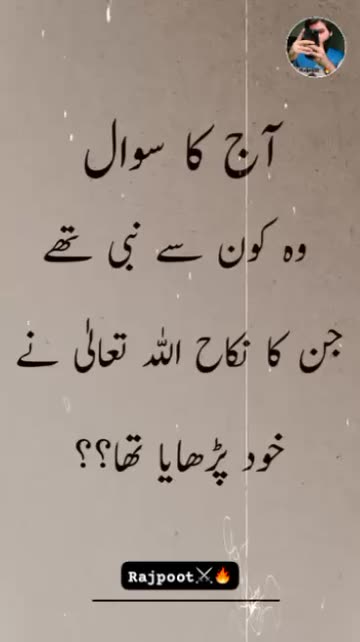 آج کا سوال
وہ کون سے نبی تھے
جن کا نکاح اللہ تعالیٰ نے
خود پڑھایا تھا؟؟
Rajpoot⚔🔥